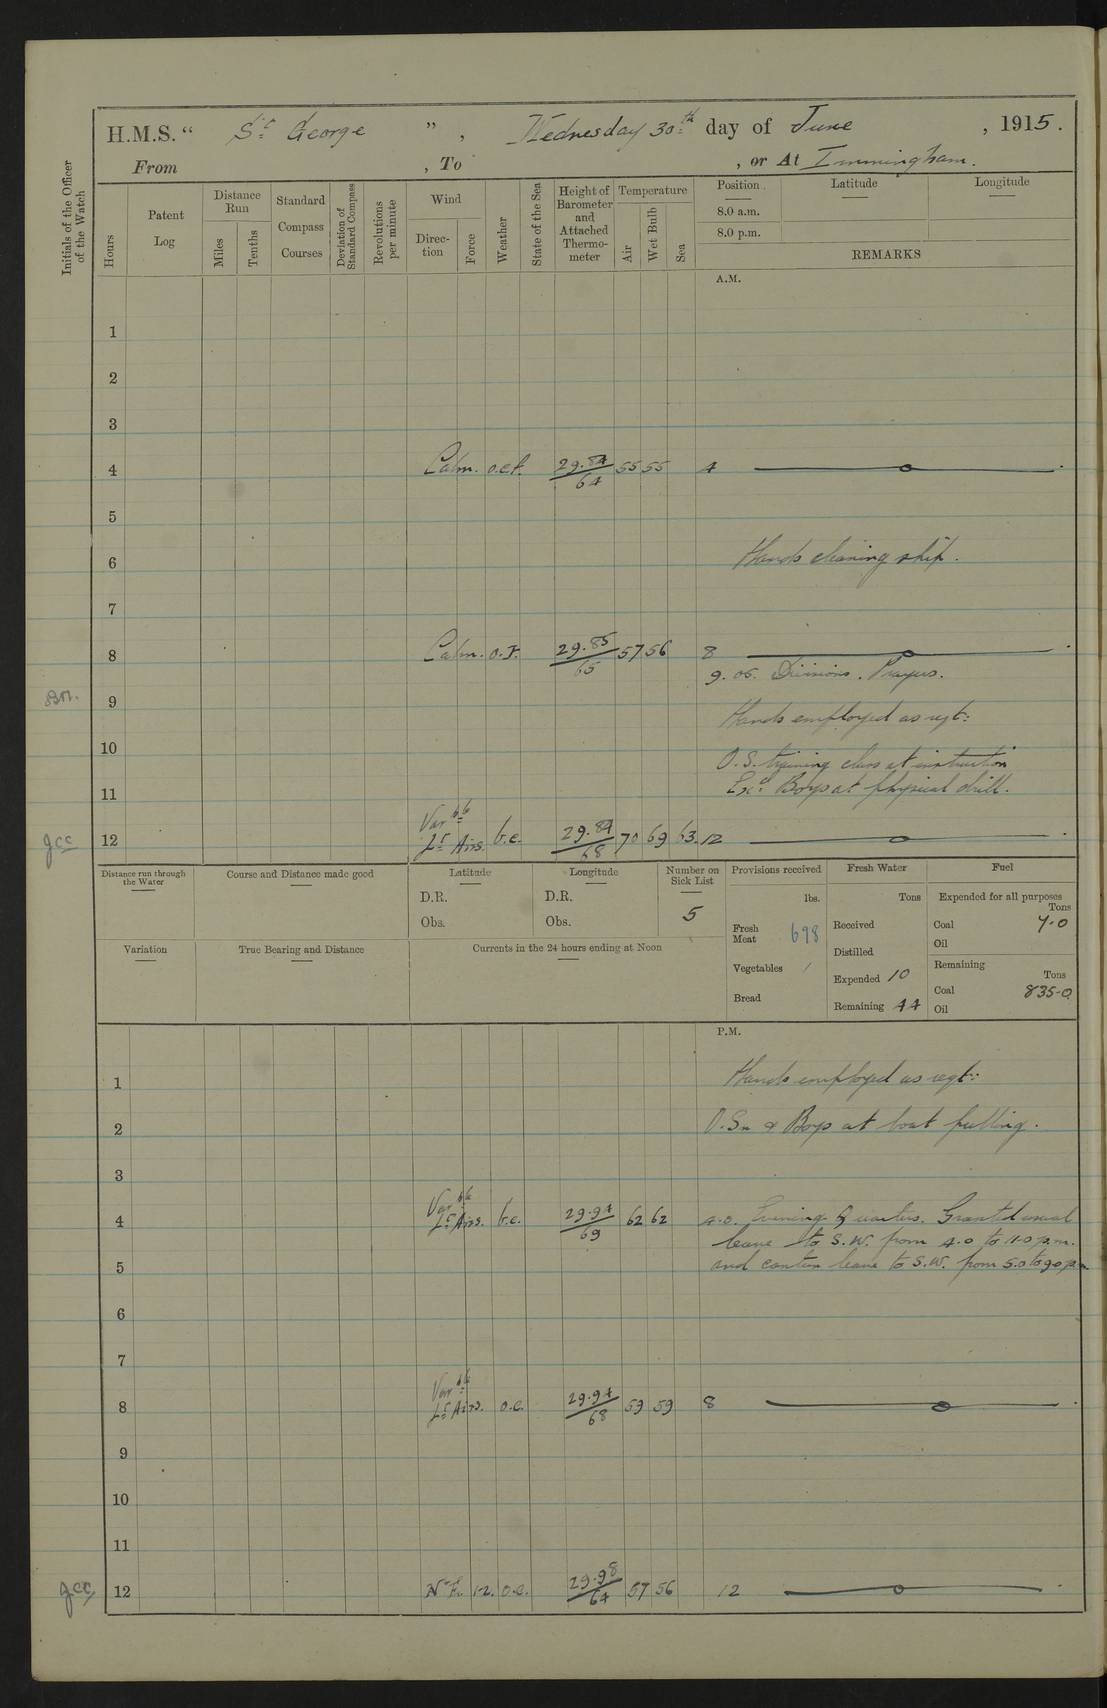 H.M.S. “ St George ” , Wednesday 30th day of June , 1915.
From , To , or At Immingham.
Initials of the Officer of the Watch
Hours
Patent Log
Distance Run
Miles
Tenths
Standard Compass Courses
Deviation of Standard Compass
Revolutions per minute
Wind
Direction
Force
Weather
State of the Sea
Height of Barometer and Attached Thermometer
Temperature
Air
Wet Bulb
Sea
Position
Latitude
Longitude
8.0 a.m.
8.0 p.m.
REMARKS
A.M.
1
2
3
4 Calm. o.c.f. 29.84/64 55 55 4
5
6 Hands cleaning ship.
7
8 Calm. o.f. 29.85/65 57 56 8
9.05. Divisions. Prayers.
9
Hands employed as reqt:
10
O.S. training class at instruction
11 Exd. Boys at physical drill.
Var ble
12 Lt Airs. b.c. 29.84/68 70 69 63. 12
Distance run through the Water
Course and Distance made good
Latitude
D.R.
Obs.
Longitude
D.R.
Obs.
Number on Sick List
5
Provisions received
lbs.
Fresh Meat 698
Vegetables
Bread
Fresh Water
Tons
Received
Distilled
Expended 10
Remaining 44
Fuel
Expended for all purposes
Tons
Coal 4.0
Oil
Remaining
Tons
Coal 835.0
Oil
Variation
True Bearing and Distance
Currents in the 24 hours ending at Noon
P.M.
1 Hands employed as reqt:
2 O.Sn & Boys at boat pulling.
3
Var ble
4 Lt Airs. b.c. 29.94/69 62 62 4.0. Evening Quarters. Granted usual
leave to S.W. from 4.0 to 11.0 p.m.
5 and canteen leave to S.W. from 5.0 to 9.0 p.m
6
7
Var ble
8 Lt Airs. o.c. 29.94/68 59 59 8
9
10
11
gcc 12 N.E. 1-2. o.c. 29.98/64 57 56 12